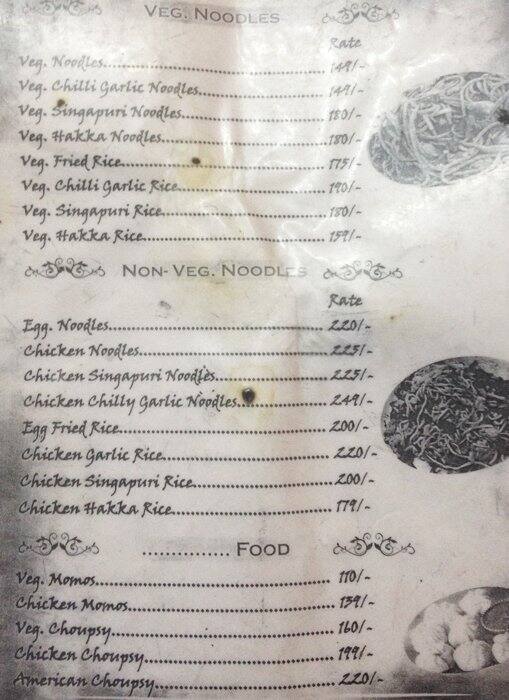 Veg. Noodles
Rate
Veg. Noodles 149/-
Veg. Chilli Garlic Noodles 149/-
Veg. Singapuri Noodles 180/-
Veg. Hakka Noodles 180/-
Veg. Fried Rice 175/-
Veg. Chilli Garlic Rice 190/-
Veg. Singapuri Rice 180/-
Veg. Hakka Rice 159/-
Non-Veg. Noodles
Rate
Egg. Noodles 220/-
Chicken Noodles 225/-
Chicken Singapuri Noodles 225/-
Chicken Chilly Garlic Noodles 249/-
Egg Fried Rice 200/-
Chicken Garlic Rice 220/-
Chicken Singapuri Rice 200/-
Chicken Hakka Rice 179/-
............... Food
Veg. Momos 110/-
Chicken Momos 139/-
Veg. Choupsy 160/-
Chicken Choupsy 199/-
American Choupsy 220/-